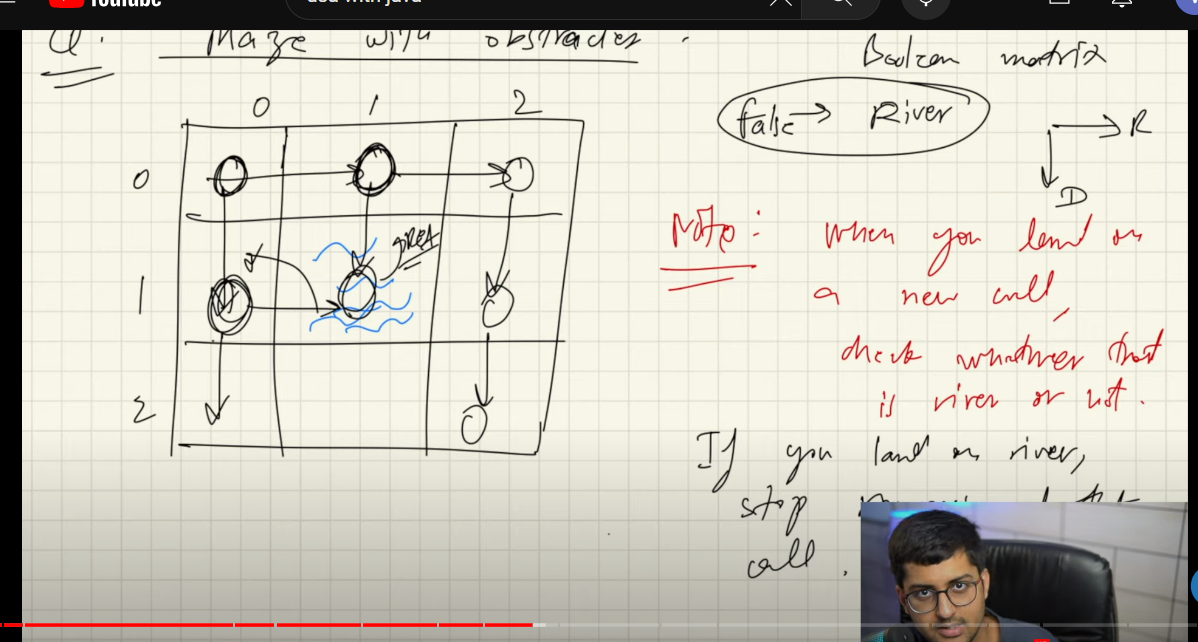 YouTube
dsa with java
Q. Maze with obstracles.
Boolean matrix
false → River
R
D
0 1 2
0
1
2
return
Note: When you land on
a new cell,
check whatever that
is river or not.
If you land on river,
stop
call.